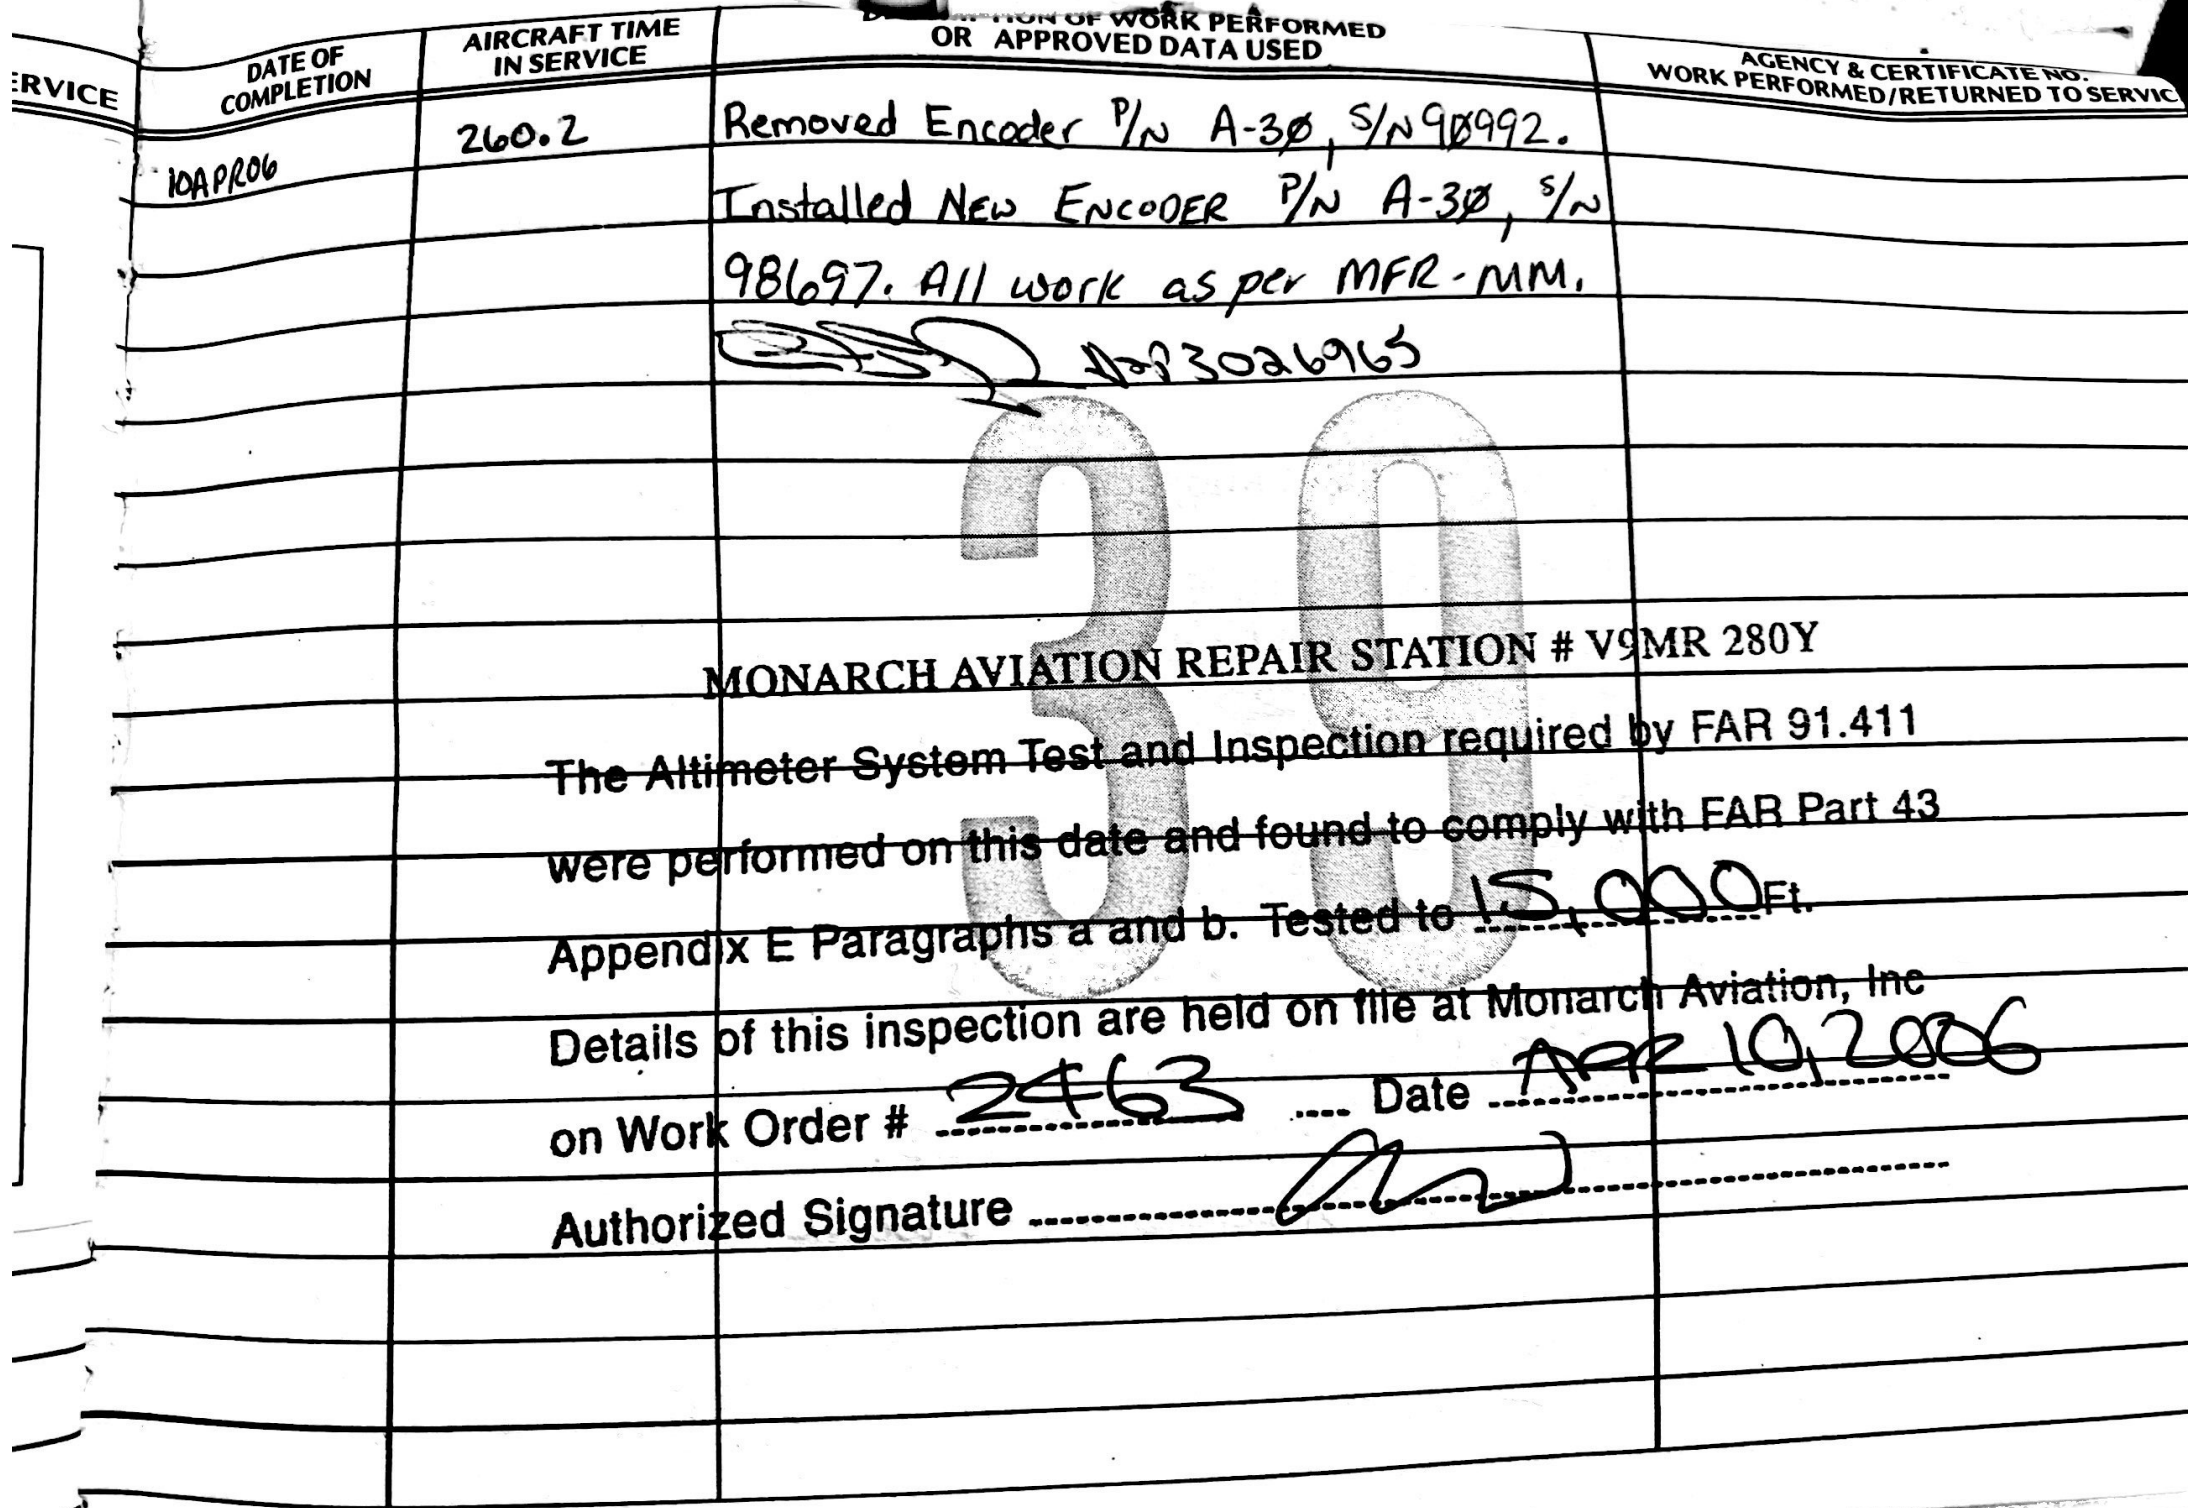 ERVICE
DATE OF
COMPLETION
AIRCRAFT TIME
IN SERVICE
OF WORK PERFORMED
OR APPROVED DATA USED
AGENCY & CERTIFICATE NO.
WORK PERFORMED/RETURNED TO SERVIC
10APR06
260.2
Removed Encoder P/N A-3Ø, S/N 9Ø992.
Installed NEW ENCODER P/N A-3Ø, S/N
98697. All work as per MFR-MM.
3026965
39
MONARCH AVIATION REPAIR STATION # V9MR 280Y
The Altimeter System Test and Inspection required by FAR 91.411
were performed on this date and found to comply with FAR Part 43
Appendix E Paragraphs a and b. Tested to 15,000 Ft.
Details of this inspection are held on file at Monarch Aviation, Inc
on Work Order # 2463 .... Date APR 10, 2006
Authorized Signature